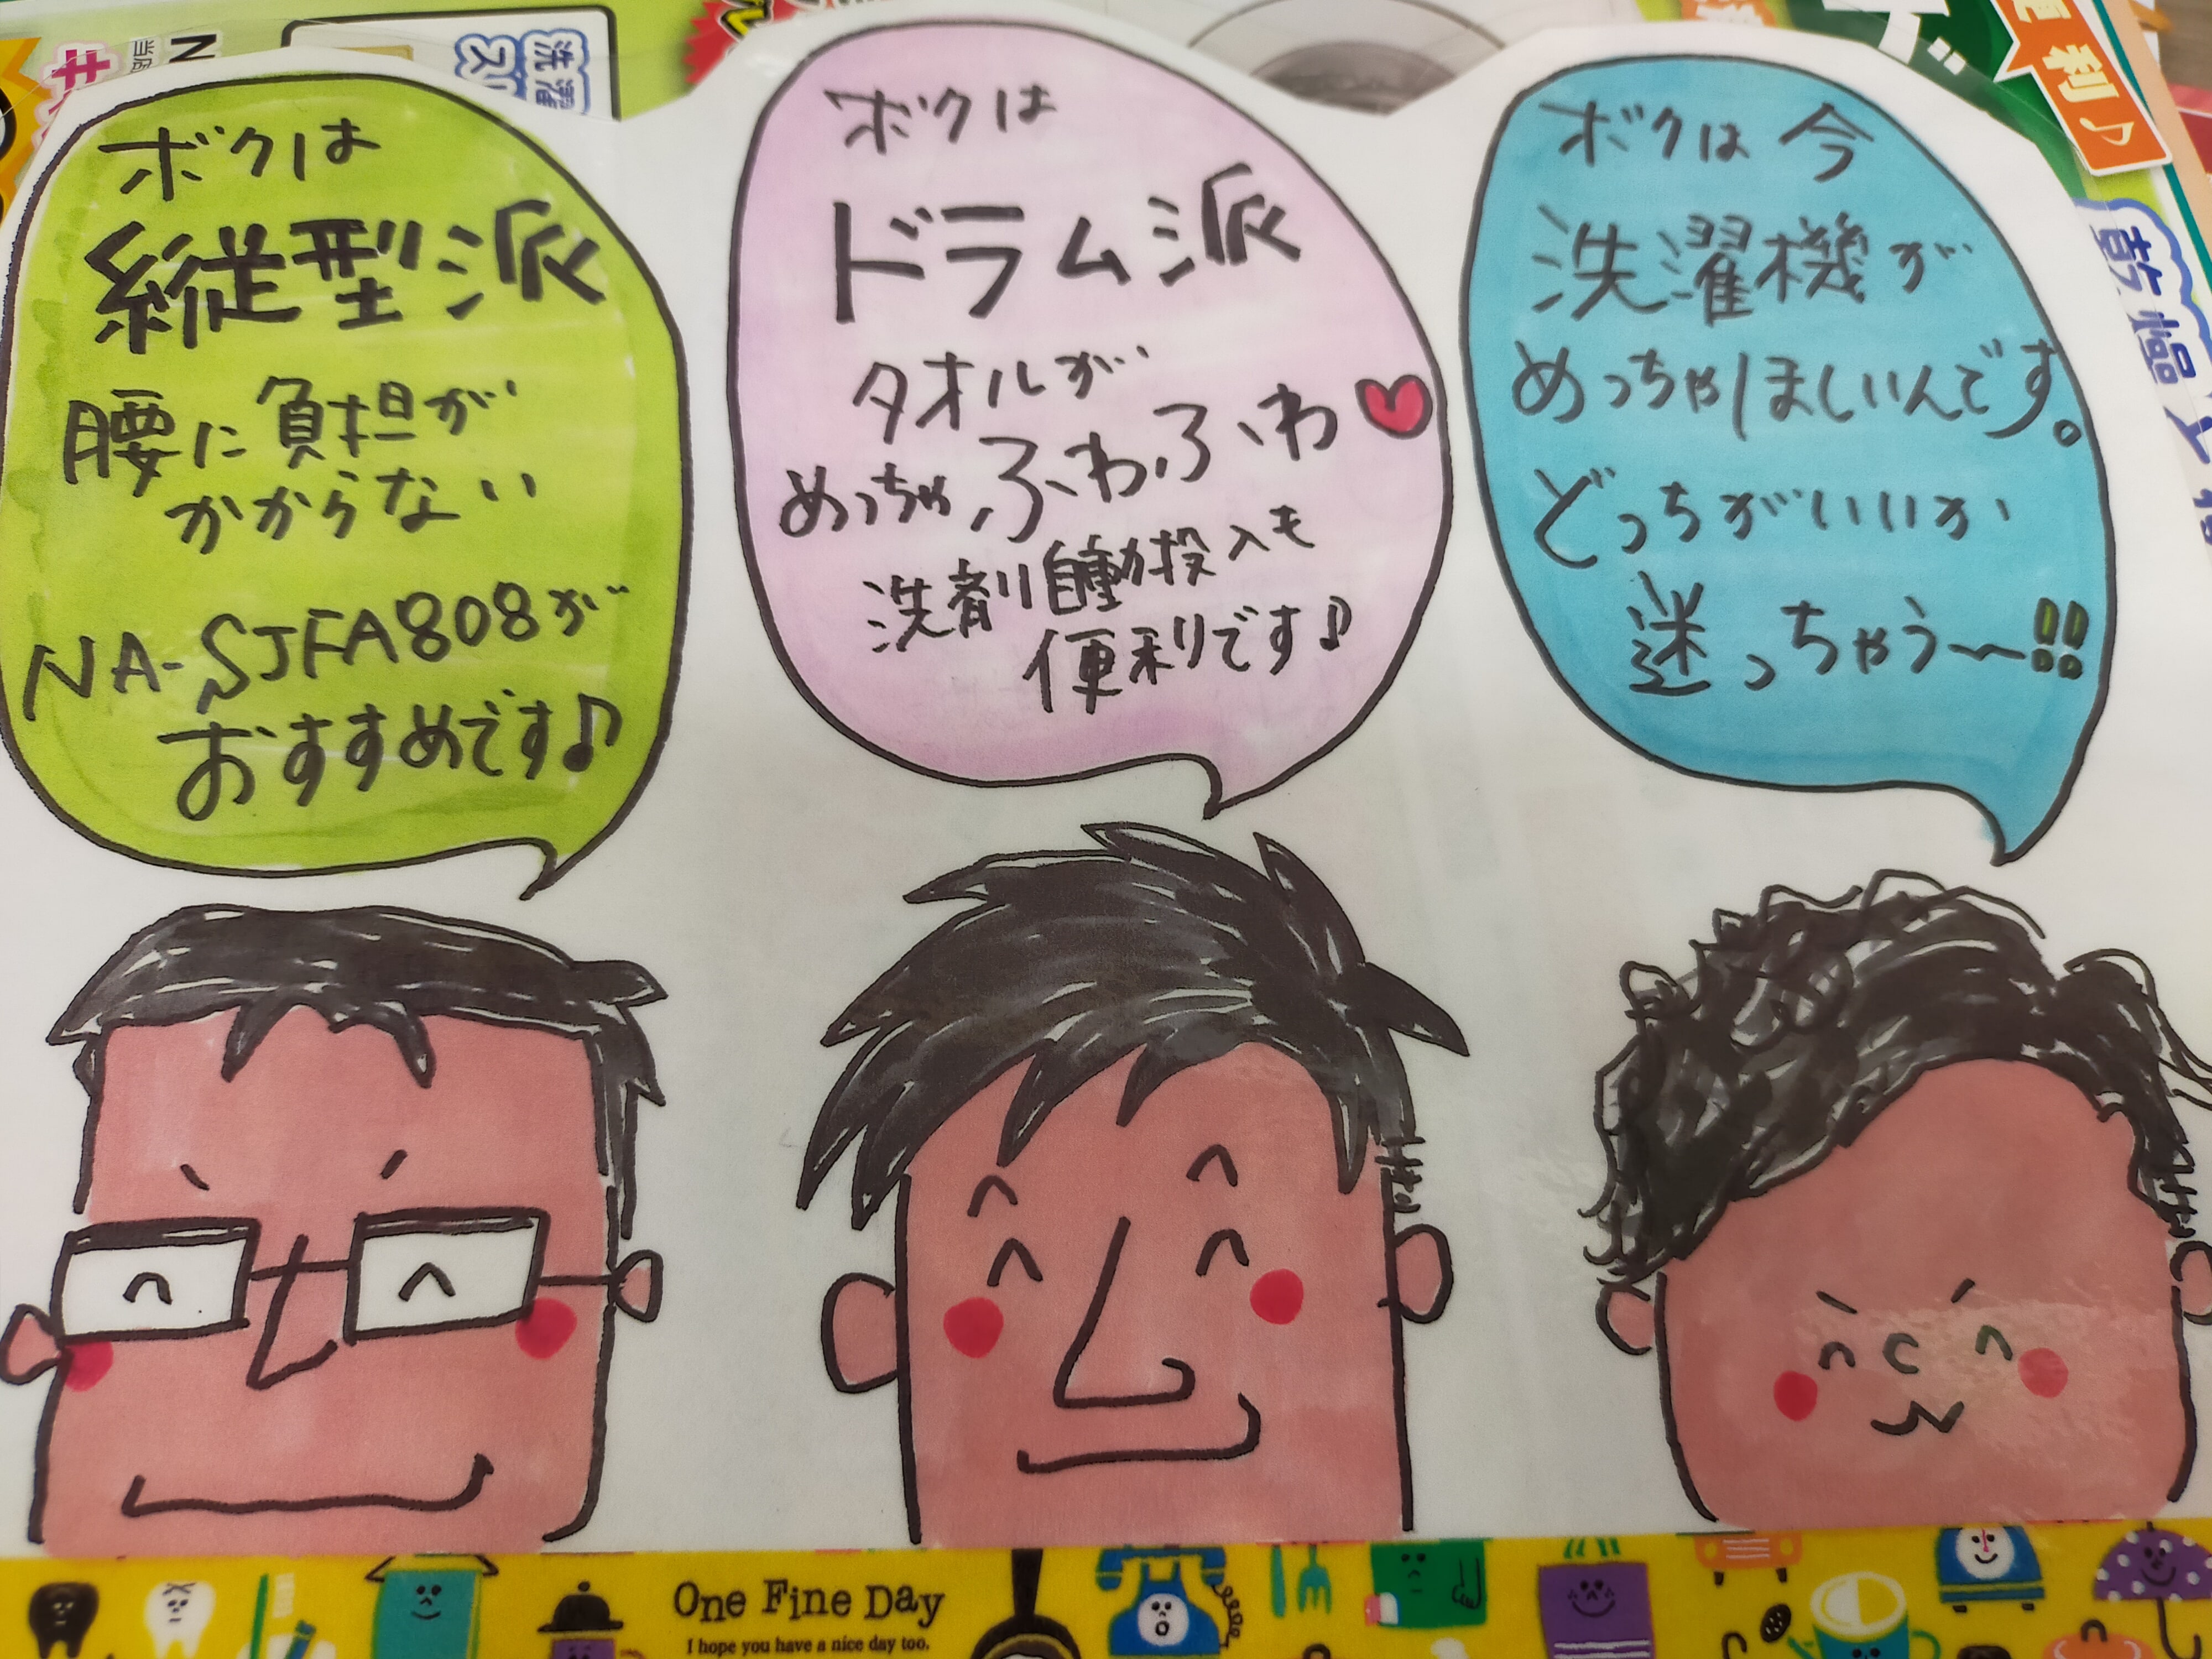 ボクは
縦型派
腰に負担が
かからない
NA-SJFA808が
おすすめです♪
ボクは
ドラム派
タオルが
めっちゃふわふわ
洗剤自動投入も
便利です♪
ボクは今
洗濯機が
めっちゃほしいんです。
どっちがいいか
迷っちゃう〜!!
洗濯
乾燥
便利♪
One Fine Day
I hope you have a nice day too.